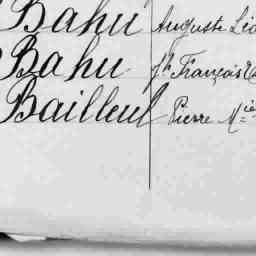 Bahu Auguste Léo
Bahu Jh François
Bailleul Pierre Mie